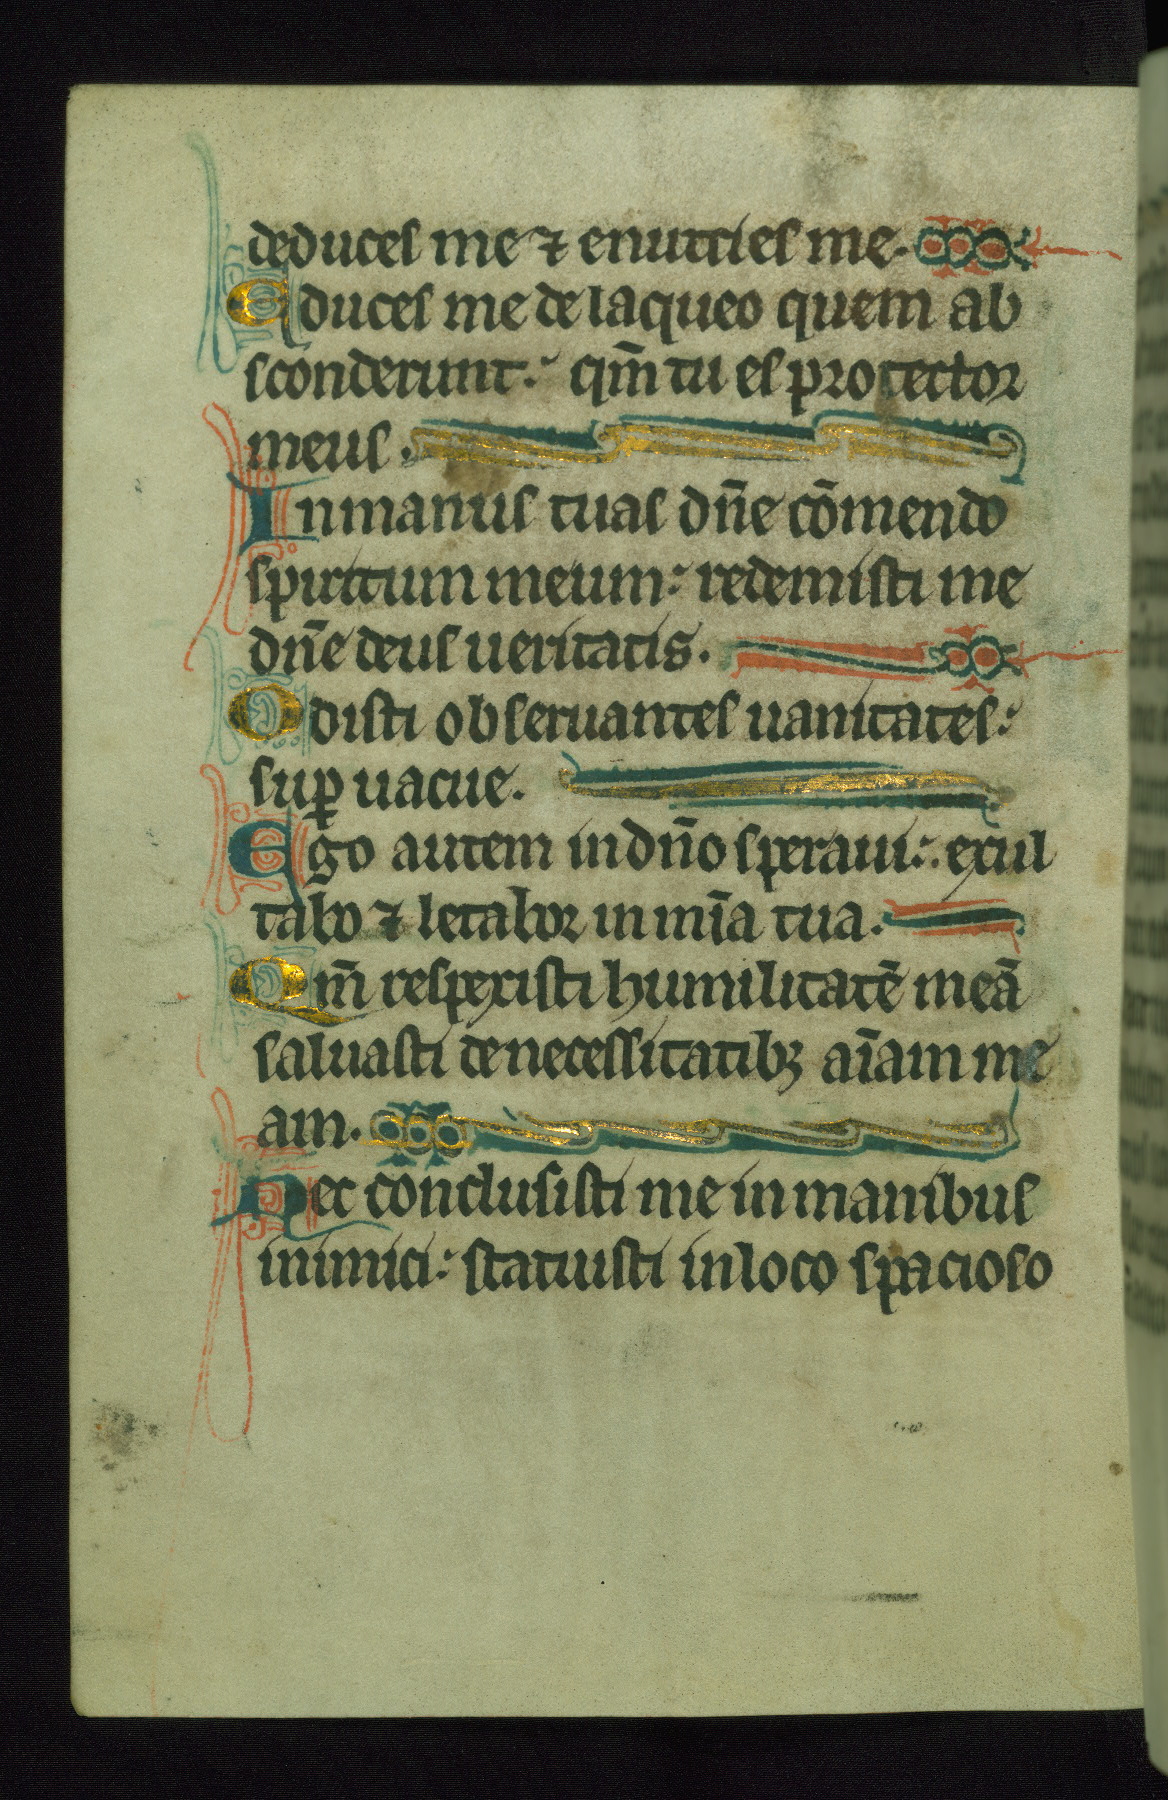 deduces me ⁊ enutries me.
Educes me de laqueo quem ab
sconderunt: qm̄ tu es protector
meus.
In manus tuas dn̄e cōmendo
spiritum meum: redemisti me
dn̄e deus ueritatis.
Odisti obseruantes uanitates:
suꝑ uacue.
Ego autem in dn̄o speraui: exul
tabo ⁊ letabor in mīa tua.
Qm̄ respexisti humilitatē meā
saluasti de necessitatibꝫ aīam me
am.
Nec conclusisti me in manibus
inimici: statuisti in loco spacioso